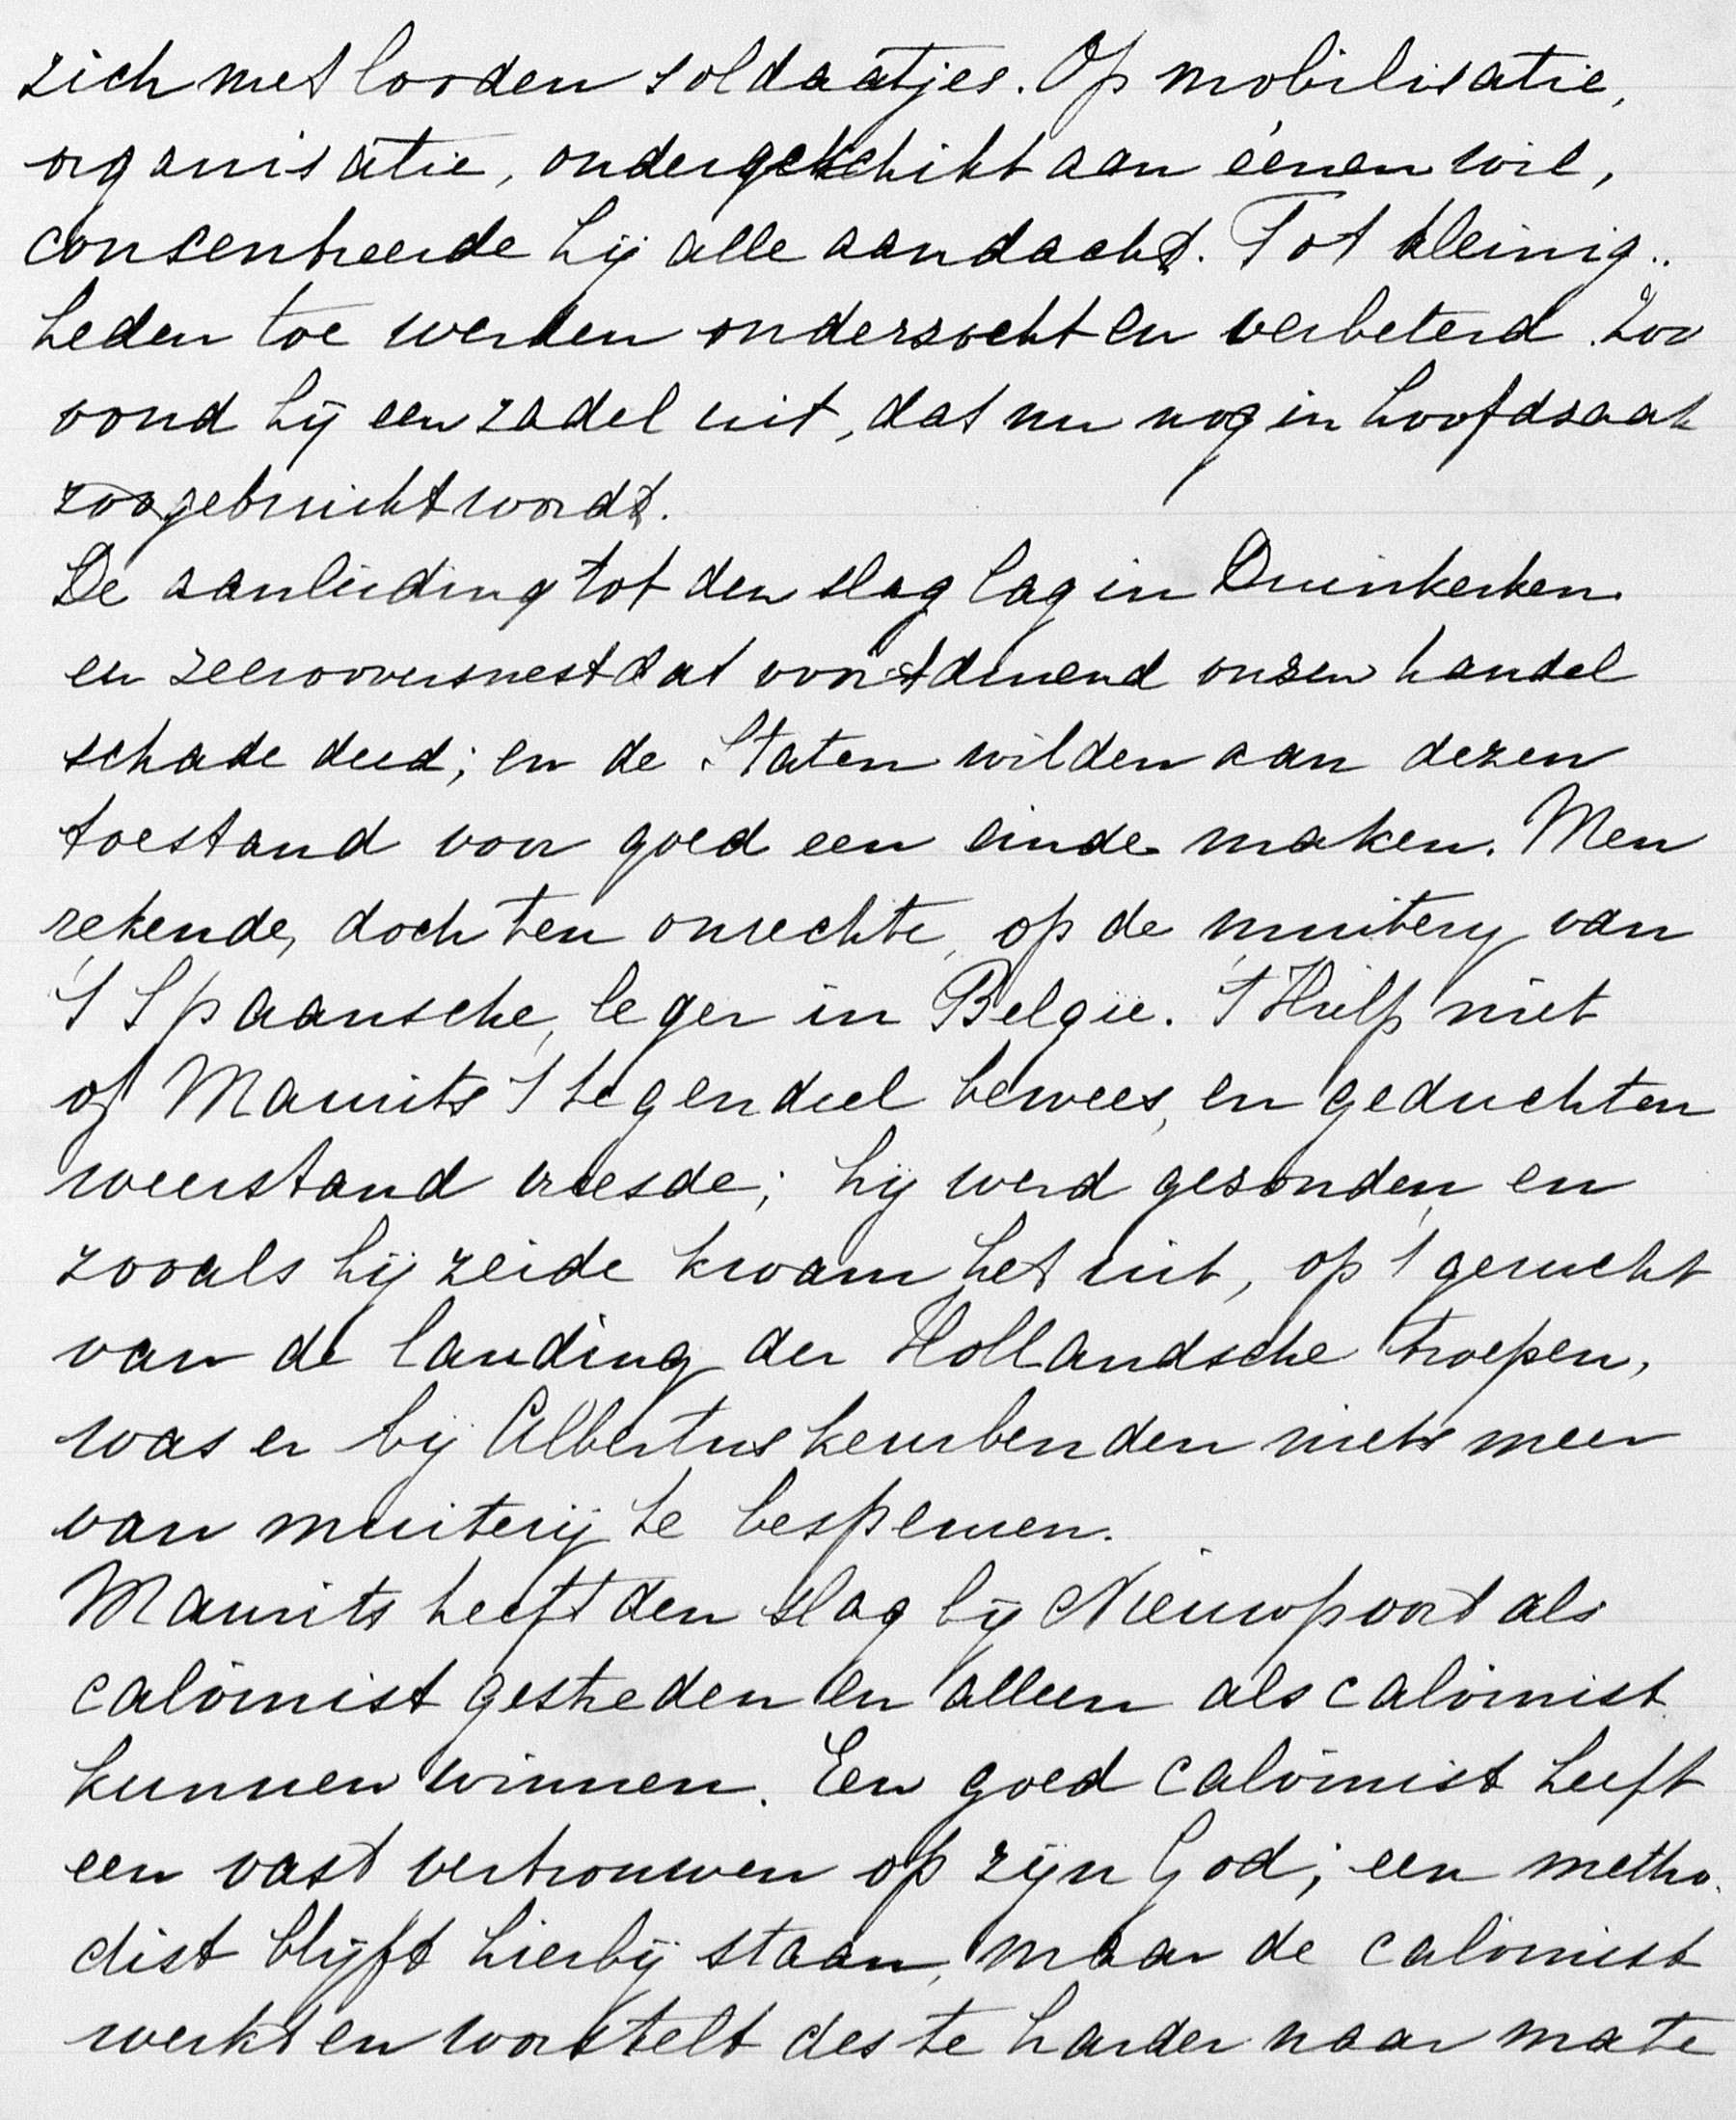 zich met looden soldaatjes. Op mobilisatie,
organisatie, ondergeschikt aan éénen wil,
consentreerde hij alle aandacht. Tot kleinig..
heden toe werden onderzocht en verbeterd. Zoo
vond hij een zadel uit, dat nu nog in hoofdzaak
zoo gebruikt wordt.
De aanleiding tot den slag lag in Duinkerken.
en zeerooversnest dat voortdurend onzen handel
schade deed; en de Staten wilden aan dezen
toestand voor goed een einde maken. Men
rekende, doch ten onrechte, op de muitery van
't Spaansche leger in België. 't Hielp niet
of Maurits 't tegendeel bewees, en geduchten
weerstand vreesde; hij werd gezonden, en
zooals hij zeide kwam het uit, op 't gerucht
van de landing der Hollandsche troepen,
was er bij Albertus keurbenden niets meer
van muiterij te bespeuren.
Maurits heeft den slag bij Nieuwpoort als
calvinist gestreden en alleen als calvinist
kunnen winnen. Een goed calvinist heeft
een vast vertrouwen op zijn God; een metho-
dist blijft hierbij staan, maar de calvinist
werkt en worstelt des te harder naar mate